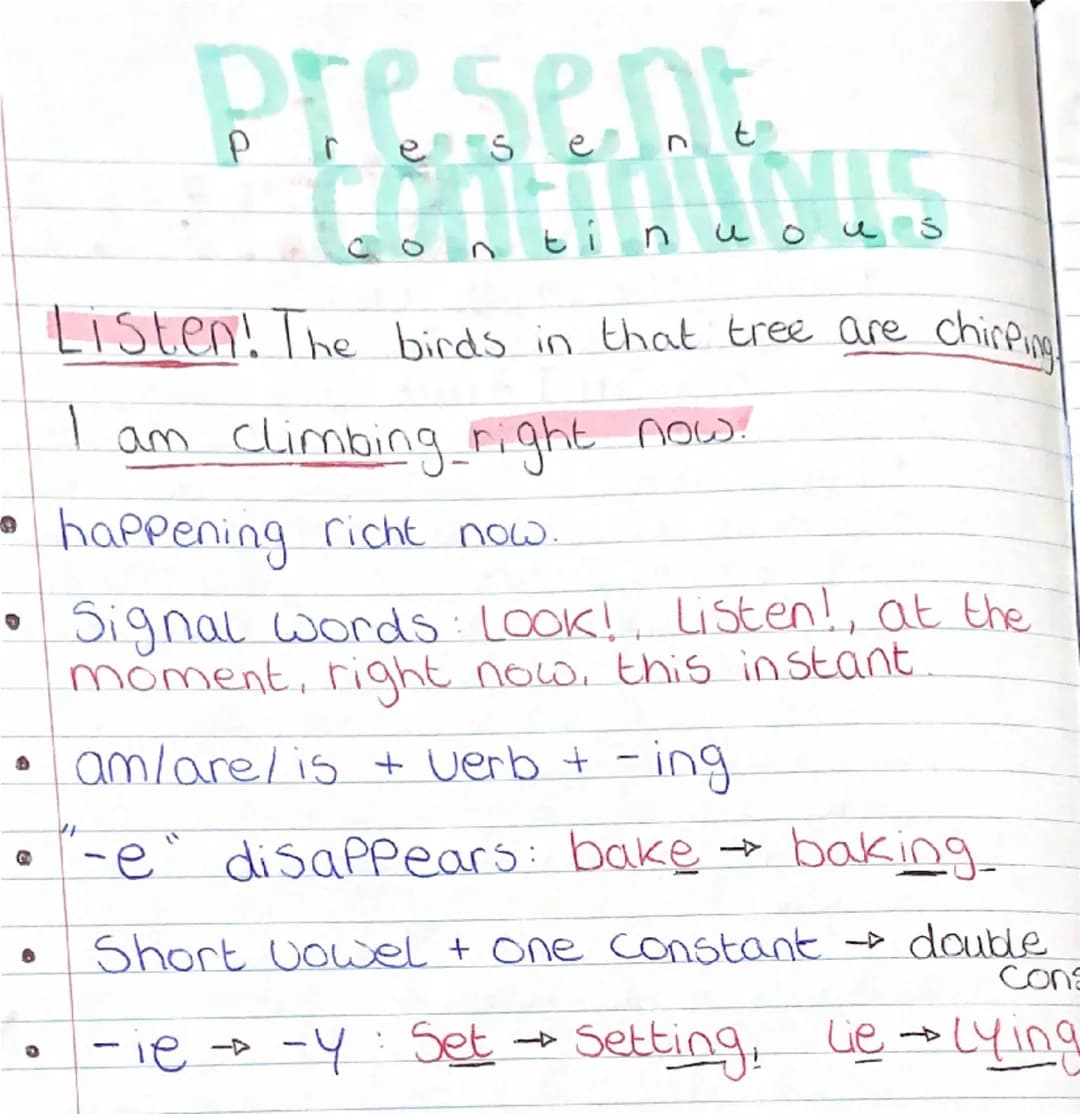 Present
Present
continuous
continuous
Listen! The birds in that tree are chirping.
I am climbing right now.
happening richt now.
Signal words: LOOK!, Listen!, at the
moment, right now, this instant.
am/are/is + verb + -ing
"-e" disappears: bake → baking
Short vowel + one constant → double
cons
-ie → -y : Set → Setting, lie → Lying